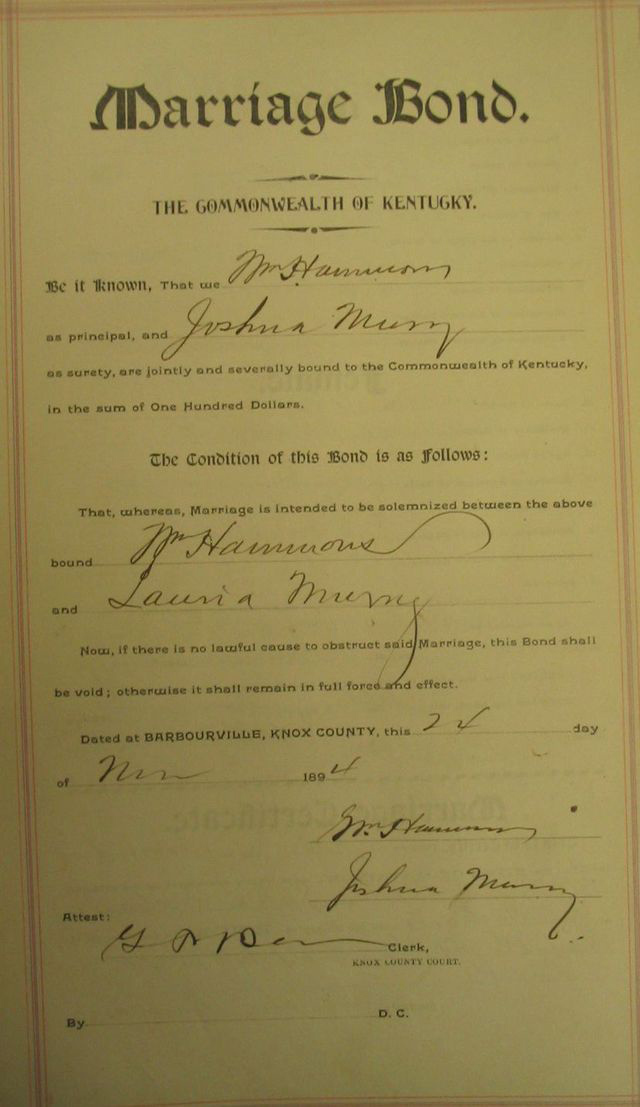 Marriage Bond.
THE COMMONWEALTH OF KENTUCKY.
Be it Known, That we Wm Hammons
as principal, and Joshua Murry
as surety, are jointly and severally bound to the Commonwealth of Kentucky,
in the sum of One Hundred Dollars.
The Condition of this Bond is as Follows:
That, whereas, Marriage is intended to be solemnized between the above
bound Wm Hammons
and Lauria Murry
Now, if there is no lawful cause to obstruct said Marriage, this Bond shall
be void; otherwise it shall remain in full force and effect.
Dated at BARBOURVILLE, KNOX COUNTY, this 24 day
of Nov 1894
Wm Hammons
Joshua Murry
Attest:
Clerk,
KNOX COUNTY COURT.
By D. C.